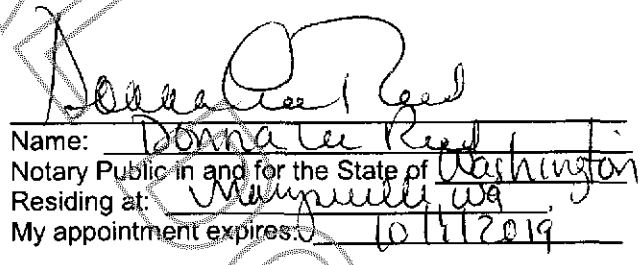 Donna Lee Reed
Name: Donna Lee Reed
Notary Public in and for the State of Washington
Residing at: Marysville, WA
My appointment expires: 10/1/2019